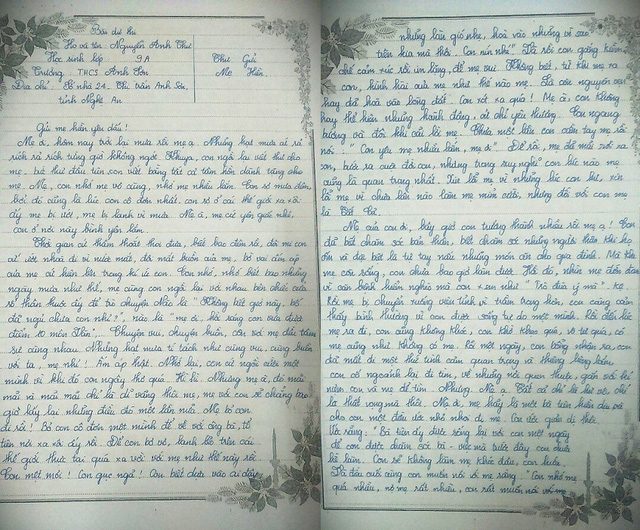 Bài dự thi
Họ và tên: Nguyễn Anh Thư
Học sinh lớp 9A
Trường: THCS Anh Sơn
Địa chỉ: Số nhà 24, Thị trấn Anh Sơn,
tỉnh Nghệ An
Thư Gửi
Mẹ Hiền.
Gửi mẹ thân yêu dấu!
Mẹ ơi, hôm nay trời lại mưa rồi mẹ ạ. Những hạt mưa cứ rả
rích rả rích từng giờ không ngớt. Khuya, con ngồi lại viết thư cho
mẹ. Bức thư đầu tiên con viết bằng tất cả tâm hồn dành tặng cho
mẹ. Mẹ, con nhớ mẹ vô cùng, nhớ mẹ nhiều lắm. Con sợ mưa đêm,
bởi đó cũng là lúc con cô đơn nhất, con sợ ở cái thế giới xa xôi
ấy mẹ bị ướt, mẹ bị lạnh vì mưa. Mẹ à, mẹ cứ yên giấc nhé,
con ở nơi này bình yên lắm.
Thời gian cứ thấm thoát thoi đưa, biết bao đêm rồi, đôi mi con
cứ ướt nhoà đi vì nước mắt, đôi mắt buồn của mẹ, bờ vai ấm áp
của mẹ cứ hiện lên trong kí ức con. Con nhớ, nhớ biết bao những
ngày mưa như thế, mẹ cùng con ngồi lại với nhau bên chiếc cửa
sổ thân thuộc ấy để trò chuyện. Nào là "Không biết giờ này, bố
đã ngủ chưa con nhỉ?", nào là "mẹ ơi, hồi sáng con vừa được
điểm 10 môn Văn". Chuyện vui, chuyện buồn, còn với mẹ đều tâm
sự cùng nhau. Những hạt mưa tí tách như cùng vui, cùng buồn
với ta, mẹ nhỉ! Ấm áp thật. Nhớ lại, con cứ ngồi cười một
mình vì khi đó con ngây thơ quá. Hì hì. Nhưng mẹ à, đó mãi
mãi và mãi mãi chỉ là dĩ vãng thôi mẹ, mẹ và con sẽ chẳng bao
giờ lấy lại những điều đó một lần nữa. Mẹ bỏ con
đi rồi! Bỏ con cô đơn một mình để về với ông bà, tổ
tiên nơi xa xôi ấy rồi. Để con bơ vơ, lạnh lẽo trên cái
thế giới thực tại quá xa vời với mẹ như thế này rồi.
Con mệt mỏi! Con gục ngã! Con biết dựa vào ai đây
những làn gió nhẹ, hoà vào những vì sao
trên kia mà thôi. Con nín nhé". Thế rồi con gắng kiềm
chế cảm xúc rồi im lặng, để mẹ vui. Không biết, từ khi mẹ xa
con, linh hồn của mẹ như thế nào mẹ. Là còn nguyên vẹn
hay đã hoà vào lòng đất. Con xót xa quá! Mẹ à, con không
hay thể hiện những hành động, cử chỉ yêu thương. Con ngang
bướng và đôi khi cãi lời mẹ. Chưa một lần con cầm tay mẹ và
nói: "Con yêu mẹ nhiều lắm, mẹ ơi". Để rồi, mẹ đã mãi rời xa
con, bước ra cuộc đời con, nhưng trong suy nghĩ con lúc nào mẹ
cũng là quan trọng nhất. Xin lỗi mẹ vì những lúc con hư, xin
lỗi mẹ vì chưa lần nào làm mẹ mỉm cười, nhưng đối với con mẹ
là Tất Cả.
Mẹ của con ơi, bây giờ con trưởng thành nhiều rồi mẹ ạ! Con
đã biết chăm sóc bản thân, biết chăm sóc những người thân khi họ
ốm và đặc biệt là tự tay nấu những món ăn cho gia đình. Mà khi
mẹ còn sống, con chưa bao giờ làm được. Hồi đó, nhìn mẹ đớn đau
vì căn bệnh hiểm nghèo mà con xem như "Trò đùa ý mà".
Rồi mẹ bị chuyển xuống viện tỉnh vì trầm trọng hơn, con càng cảm
thấy bình thường vì con được sống tự do một mình. Rồi đến lúc
mẹ ra đi, con cũng không khóc, con khô khan quá, vô tư quá, có
mẹ cũng như không có mẹ. Rồi một ngày, con bỗng nhận ra, con
đã mất đi một thứ tình cảm quan trọng và thiêng liêng lắm,
con cố ngoảnh lại đi tìm, về những nơi quen thuộc, gắn với kỉ
niệm con và mẹ để tìm. Nhưng. Mẹ à. Tất cả chỉ là hư vô, chỉ
là thất vọng mà thôi. Mẹ ơi, mẹ hãy là một bà tiên hiền dịu và
cho con một điều ước nhỏ nhoi đi mẹ. Con ước quên đi thôi.
Và rằng: "Bà tiên ấy được sống lại với con một ngày
để con được chăm sóc bà - việc mà trước đây con chưa
hề làm. Con sẽ không làm mẹ khóc đâu, con hứa.
Và đâu cuối cùng con muốn nói với mẹ rằng "Con nhớ mẹ
quá nhiều, nợ mẹ rất nhiều, con rất muốn nói với mẹ